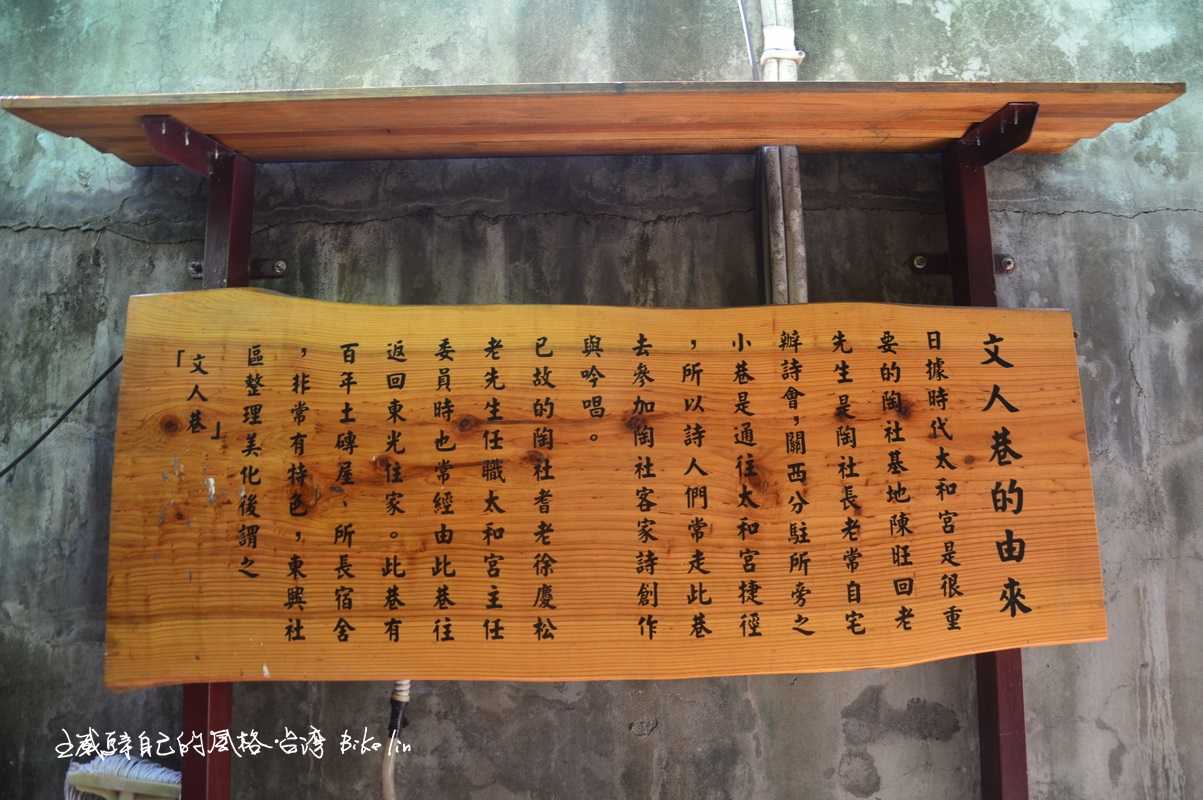 文人巷的由來
日據時代太和宮是很重
要的陶社基地陳旺回老
先生是陶社長老常自宅
辦詩會，關西分駐所旁之
小巷是通往太和宮捷徑
，所以詩人們常走此巷
去參加陶社客家詩創作
與吟唱。
已故的陶社耆老徐慶松
老先生任職太和宮主任
委員時也常經由此巷往
返回東光住家。此巷有
百年土磚屋、所長宿舍
，非常有特色，東興社
區整理美化後謂之
「文人巷」
自己的風格.台湾 Bike lin